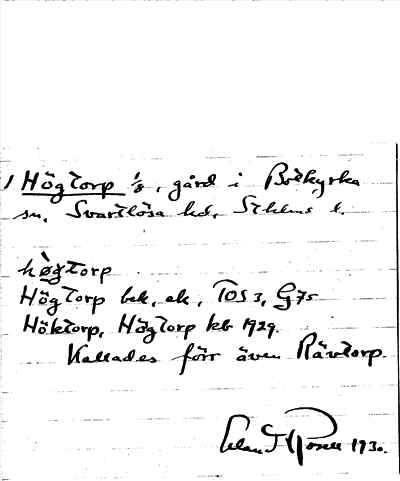 1 Högtorp 1/8, gård i Botkyrka
sn, Svartlösa hd, Sthlms l.
hø̀gtorp
Högtorp bek, ek, TOS 3, G75
Höktorp, Högtorp kb 1929.
Kallades förr även Rävtorp.
Erland Rosell 1930.